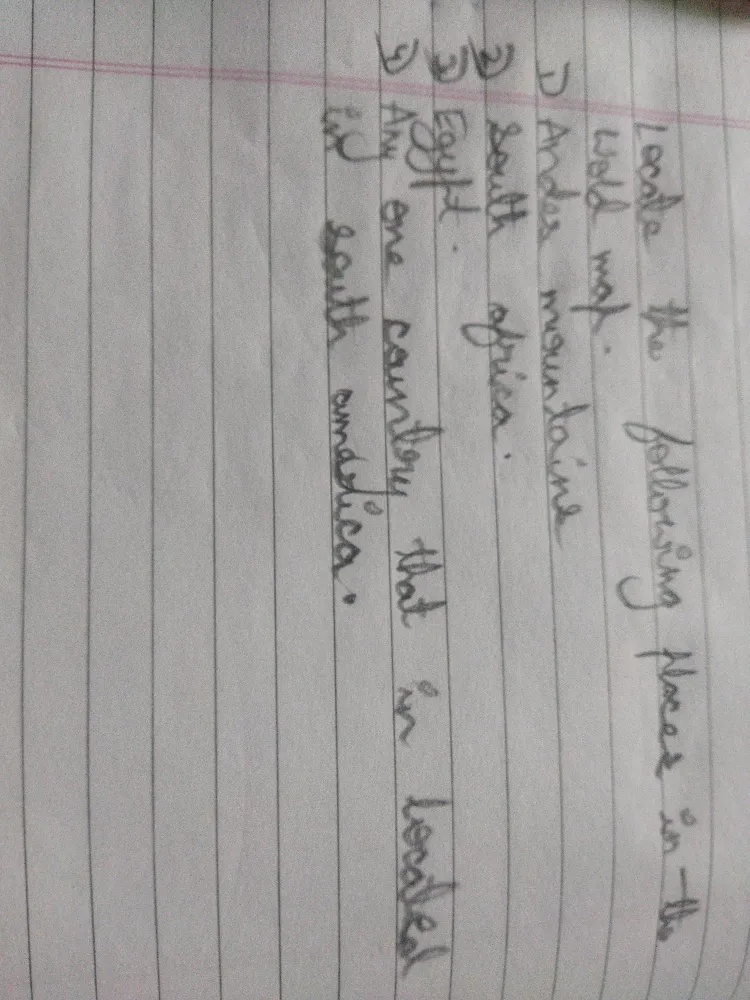 Locate the following places in the
world map.
1) Andes mountains
2) South africa.
3) Egypt.
4) Any one country that in located
in south amerdica.